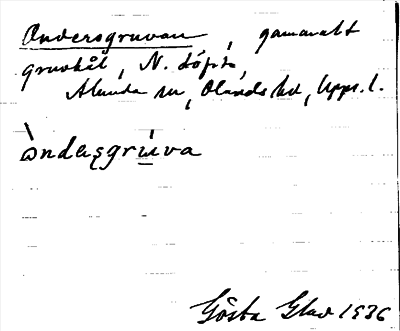 Ondersgruvan, gammalt
gruvhål, N. Löfsta,
Alunda sn, Olands hd, Upps. l.
òndaʂgrùva
Gösta Glad 1936